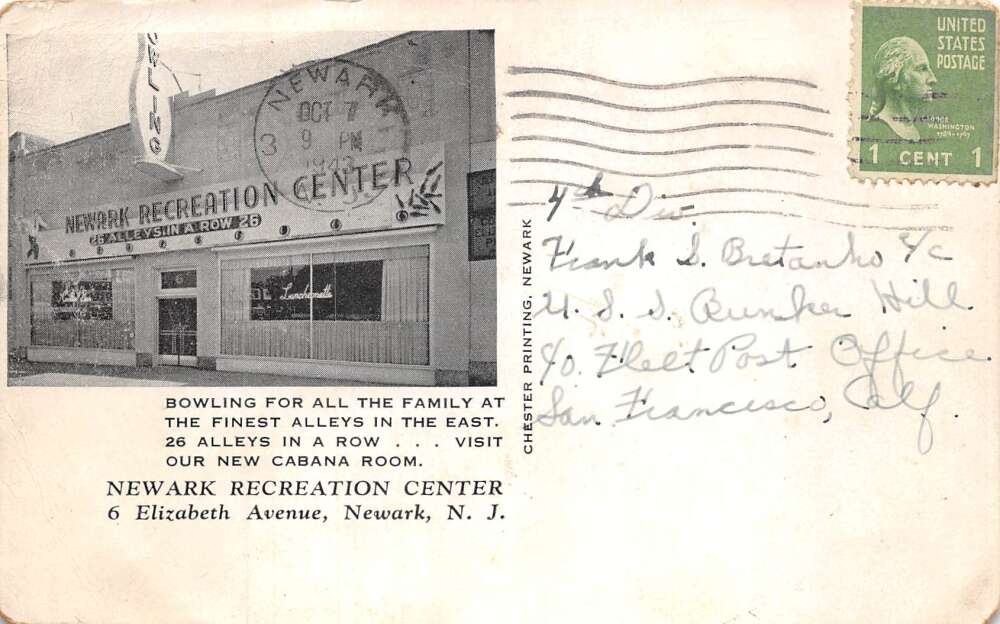 WLING
NEWARK RECREATION CENTER
26 ALLEYS IN A ROW 26
Luncheonette
NEWARK
OCT 7
9 PM
1943
N. J.
3
BOWLING FOR ALL THE FAMILY AT
THE FINEST ALLEYS IN THE EAST.
26 ALLEYS IN A ROW . . . VISIT
OUR NEW CABANA ROOM.
NEWARK RECREATION CENTER
6 Elizabeth Avenue, Newark, N. J.
CHESTER PRINTING, NEWARK
UNITED
STATES
POSTAGE
GEORGE
WASHINGTON
1789-1797
1 CENT 1
4th Div
Frank S. Bretanho S/c
U. S. S. Bunker Hill
c/o Fleet Post Office
San Francisco, Calif.